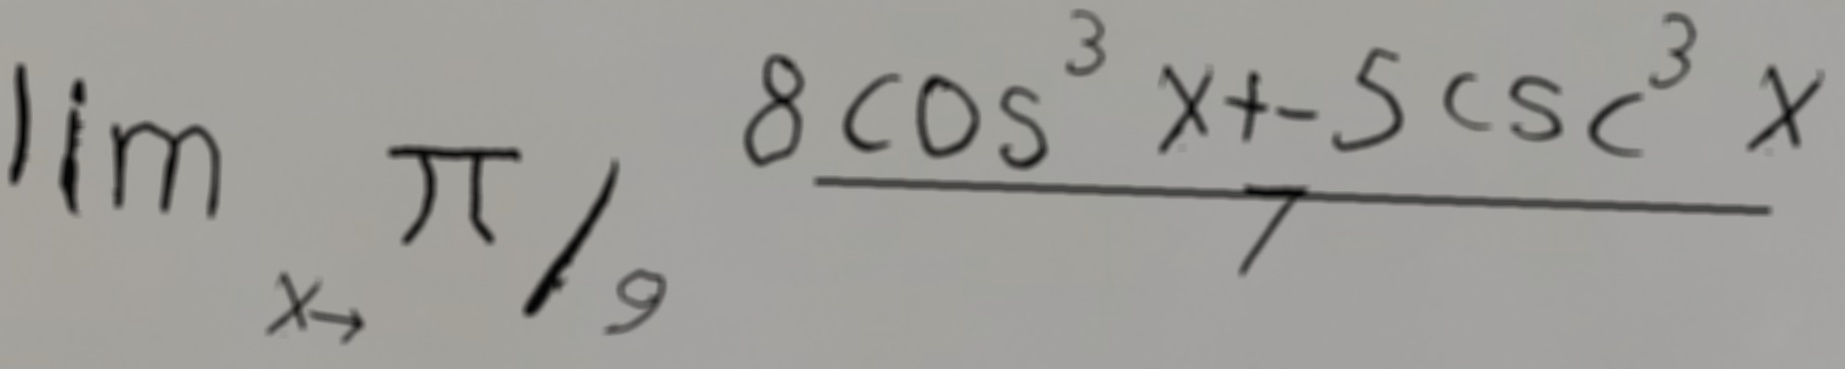 lim x→ π/9 (8cos³ x+-5csc³ x)/7